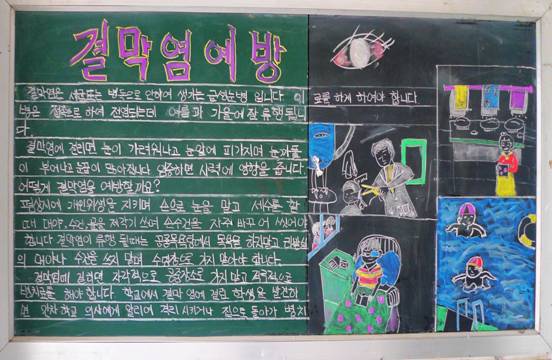 결막염예방
결막염은 세균또는 병독으로 인하여 생기는 급성눈병 입니다 이
병은 접촉으로 하여 전염되는데 여름과 가을에 잘 류행됩니
다.
결막염에 걸리면 눈이 가려워나고 눈알에 피가지며 눈까풀
이 부어나고 눈꼽이 많아집니다 심하면 시력에 영향을 줍니다
어떻게 결막염을 예방할까요?
평상시에 개인위생을 지키며 손으로 눈을 말고 세수를 할
때 대야, 수건, 물을 제각기 쓰며 손수건을 자주 바꾸어 씻어야
합니다 결막염이 류행 될때는 공용목욕탕에서 목욕을 하지말고 리발실
의 대야나 수건을 쓰지 말며 수영장으로 가지 말아야 합니다.
결막염에 걸리면 자각적으로 공공장소로 가지 말고 적극적으로
병치료를 해야 합니다. 학교에서 결막염에 걸린 학생을 발견하
면 인차 학교 의사에게 알리어 격리 시키거나 집으로 돌아가 병치
료를 하게 하여야 합니다